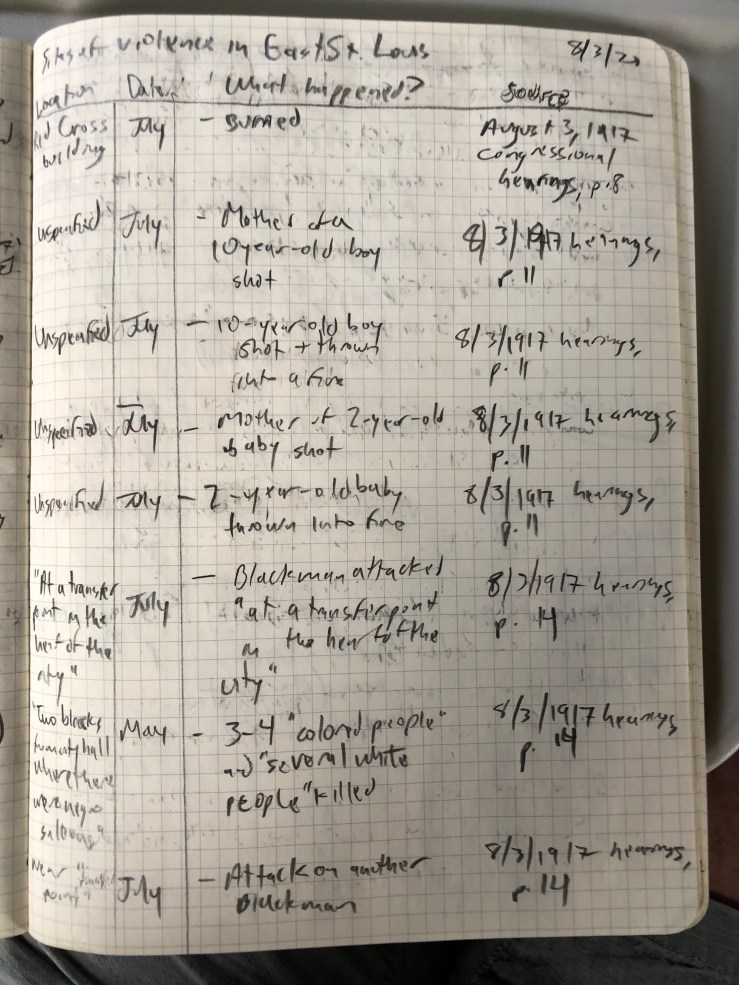 Sites of violence in East St. Louis 8/3/20
Location Date What happened? Source
Red Cross building July - Burned August 3, 1917 Congressional hearings, p. 8
Unspecified July - Mother of a 10 year-old boy shot 8/3/1917 hearings, p. 11
Unspecified July - 10-year-old boy shot + thrown into a fire 8/3/1917 hearings, p. 11
Unspecified July - Mother of 2-year-old baby shot 8/3/1917 hearings, p. 11
Unspecified July - 2-year-old baby thrown into fire 8/3/1917 hearings, p. 11
"At a transfer point in the heart of the city" July - Black man attacked "at a transfer point in the heart of the city" 8/3/1917 hearings, p. 14
"Two blocks from city hall where there were negro saloons" May - 3-4 "colored people" and "several white people" killed 8/3/1917 hearings p. 14
Near "transfer point" July - Attack on another Black man 8/3/1917 hearings, p. 14